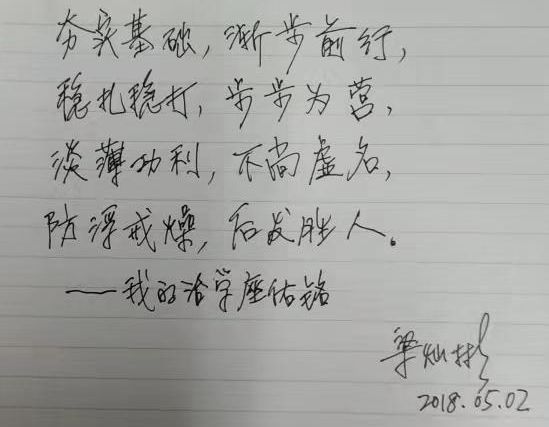 夯实基础，渐步前行，
稳扎稳打，步步为营，
淡薄功利，不尚虚名，
防浮戒燥，后发胜人。
——我的治学座佑铭
梁灿彬
2018.05.02